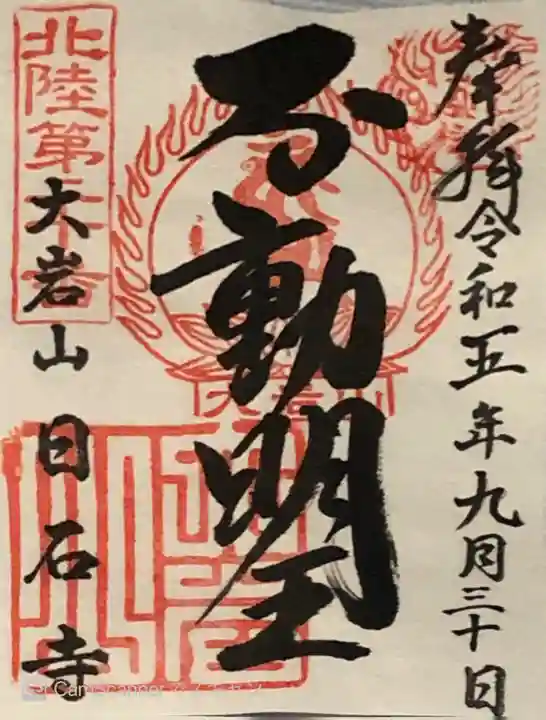 奉拝 令和五年九月三十日
不動明王
大岩山 日石寺
北陸第
大岩山
CamScanner